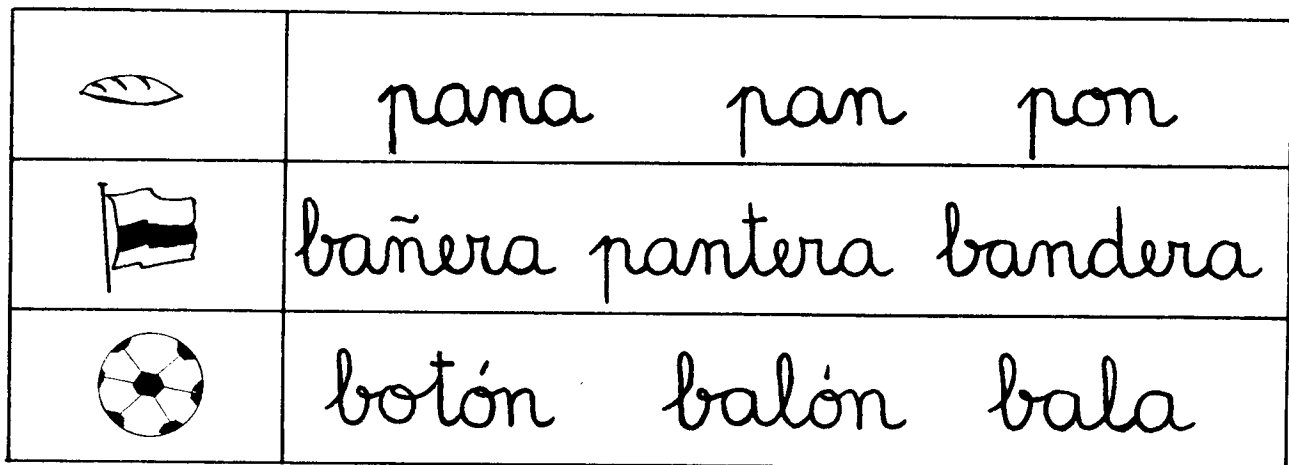 pana pan pon
bañera pantera bandera
botón balón bala